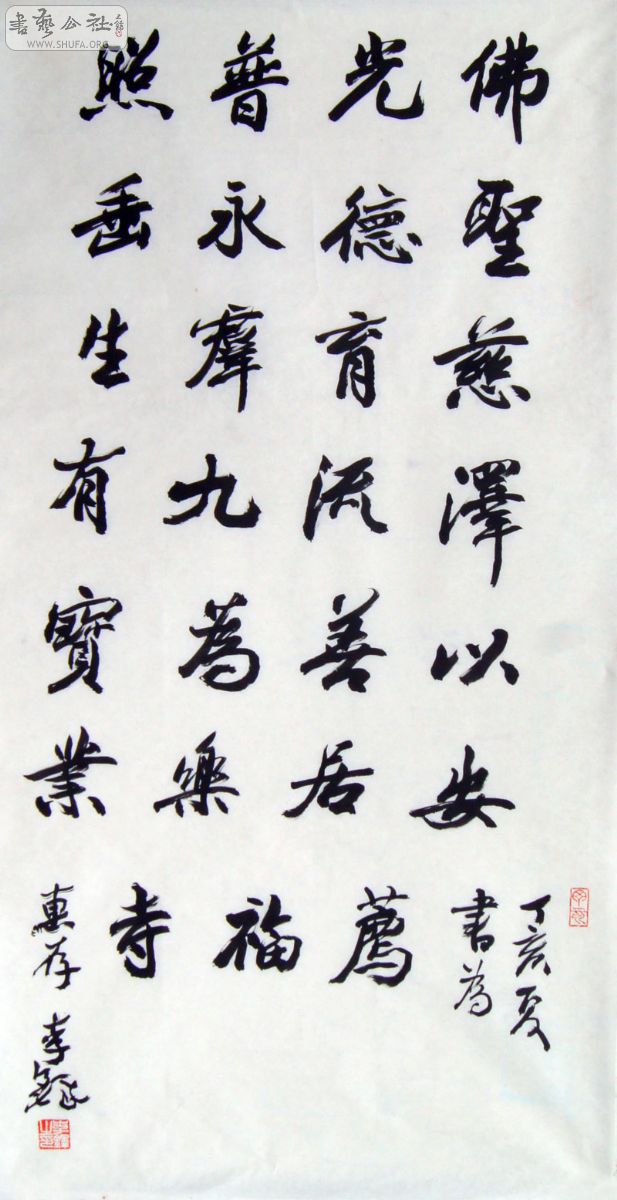 書藝公社
WWW.SHUFA.ORG
佛光普照
聖德永垂
慈育羣生
澤流九有
以善為寶
安居樂業
丁亥夏
書為
薦福寺
惠存 李